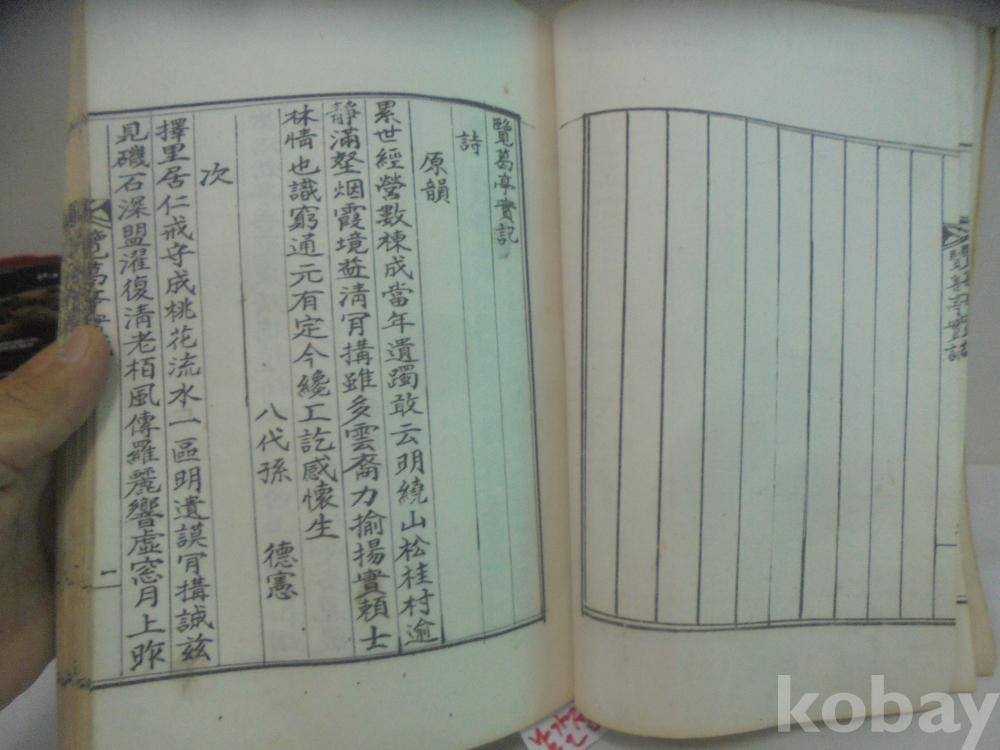 覽葛亭實記
覽葛亭實記
詩
原韻
累世經營數棟成當年遺躅敢云明繞山松桂村逾
靜滿壑烟霞境益淸肯搆雖多雲裔力揄揚實賴士
林情也識窮通元有定今纔工訖感懷生
八代孫 德憲
次
擇里居仁戒守成桃花流水一區明遺謨肯搆誠玆
見磯石深盟濯復淸老栢風傳羅麗響虛窓月上昨
覽葛亭實
一
kobay